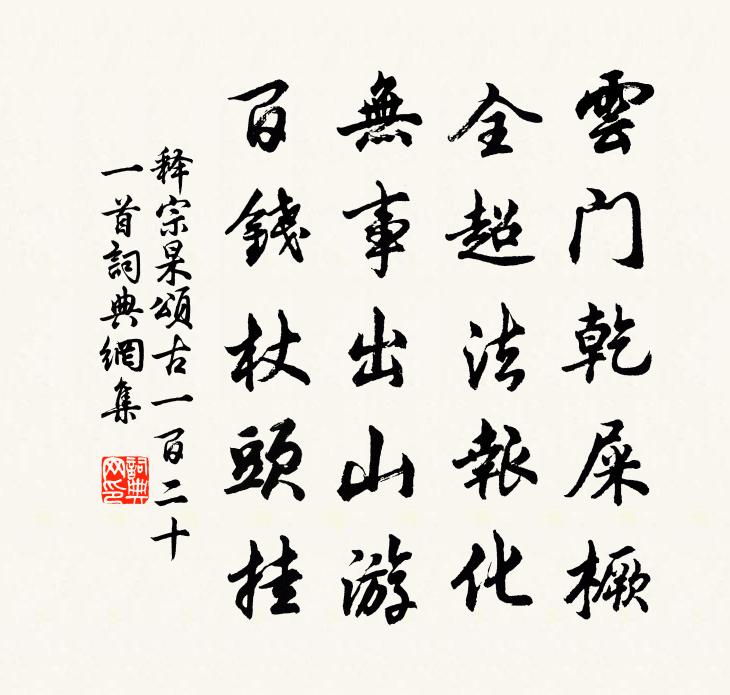 雲门乾屎橛
全超法報化
無事出山游
百錢杖頭挂
释宗杲頌古一百二十
一首詞典網集
詞典网印